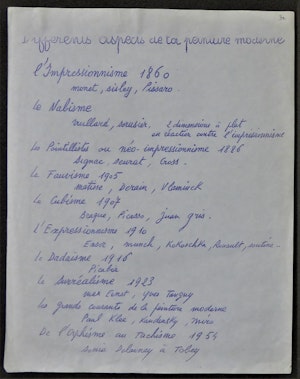 Différents aspects de la peinture moderne
l'Impressionnisme 1860
monet, sisley, Pissaro.
Le Nabisme
vuillard, serusier, 2 dimensions à plat
en réaction contre l'impressionnisme
Le Pointilliste ou néo-impressionnisme 1886
Signac, seurat, Cross.
Le Fauvisme 1905
matisse, Derain, Vlaminck
Le Cubisme 1907
Braque, Picasso, juan gris.
L'Expressionnisme 1910
Ensor, munch, Kokoschka, Rouault, soutine.
Le Dadaïsme 1916
Picabia
Le Surréalisme 1923
max Ernst, yves Tanguy
Les grands courants de la peinture moderne
Paul Klee, Kandinsky, Miro
De l'Orphisme au Tachisme 1954
Sonia Delauney à Tobey